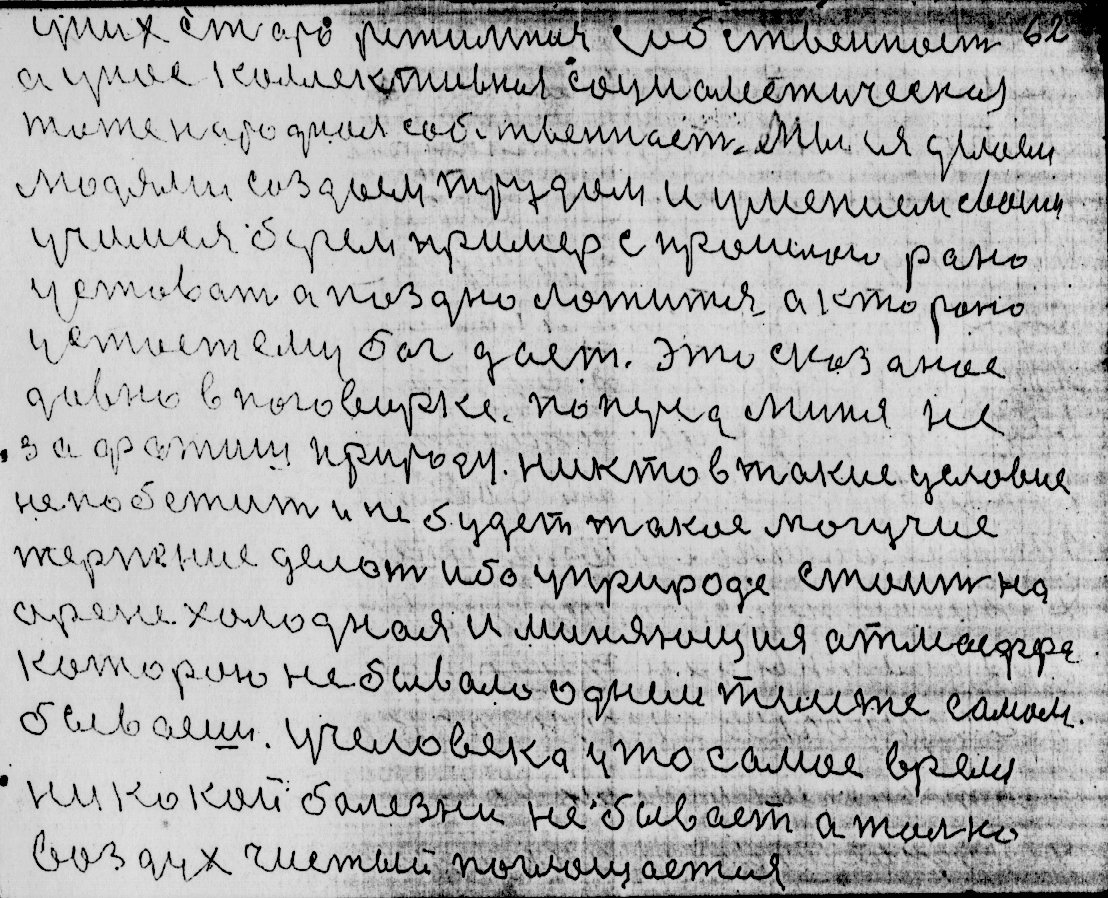 уних старо режимная собственност 62
а унас коллективная социалстическая
тоже народная собственаст. Мы ия делаем
людями создоем трудом и умением своим
учимся берем пример с прошлого рано
устават а поздно ложится, а кто рано
устает ему бог дает. Это сказаное
давно в поговирке.
природу. никто в такие условие
непобежит и не будет такое могучие
терпение делат ибо уприроде стоит на
арене холодная и миняющия атмасфра
которою небывало одним тимже самом.
бываеш. учеловека уто самое время
никокой болезни небывает а толко
воздух чистый поглощается